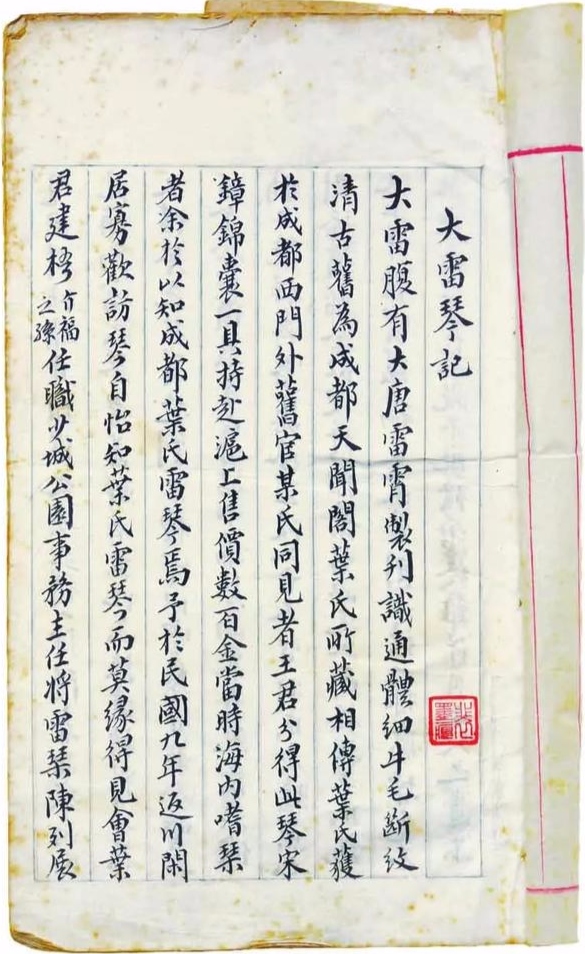 大雷琴記
大雷腹有大唐雷霄製刊識通體細牛毛斷紋
清古舊為成都天聞閣葉氏所藏相傳葉氏獲
於成都西門外舊宦某氏同見者王君分得此琴宋
鐔錦囊一具持赴滬上售價數百金當時海內嗜琴
者涂於以知成都葉氏雷琴焉予於民國九年返川閑
居寡歡訪琴自怡知葉氏雷琴而莫緣得見會葉
君建梧介福之孫任職少城公園事務主任將雷琴陳列展